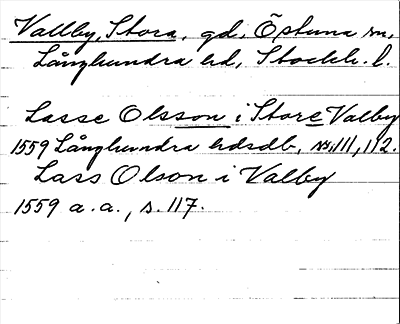 Vallby, Stora, gd, Östuna sn,
Långhundra hd, Stockh. l.
Lasse Olsson i Store Valby
1559 Långhundra hdsdb, ss. 111, 112.
Lass Olson i Valby
1559 a. a., s. 117.